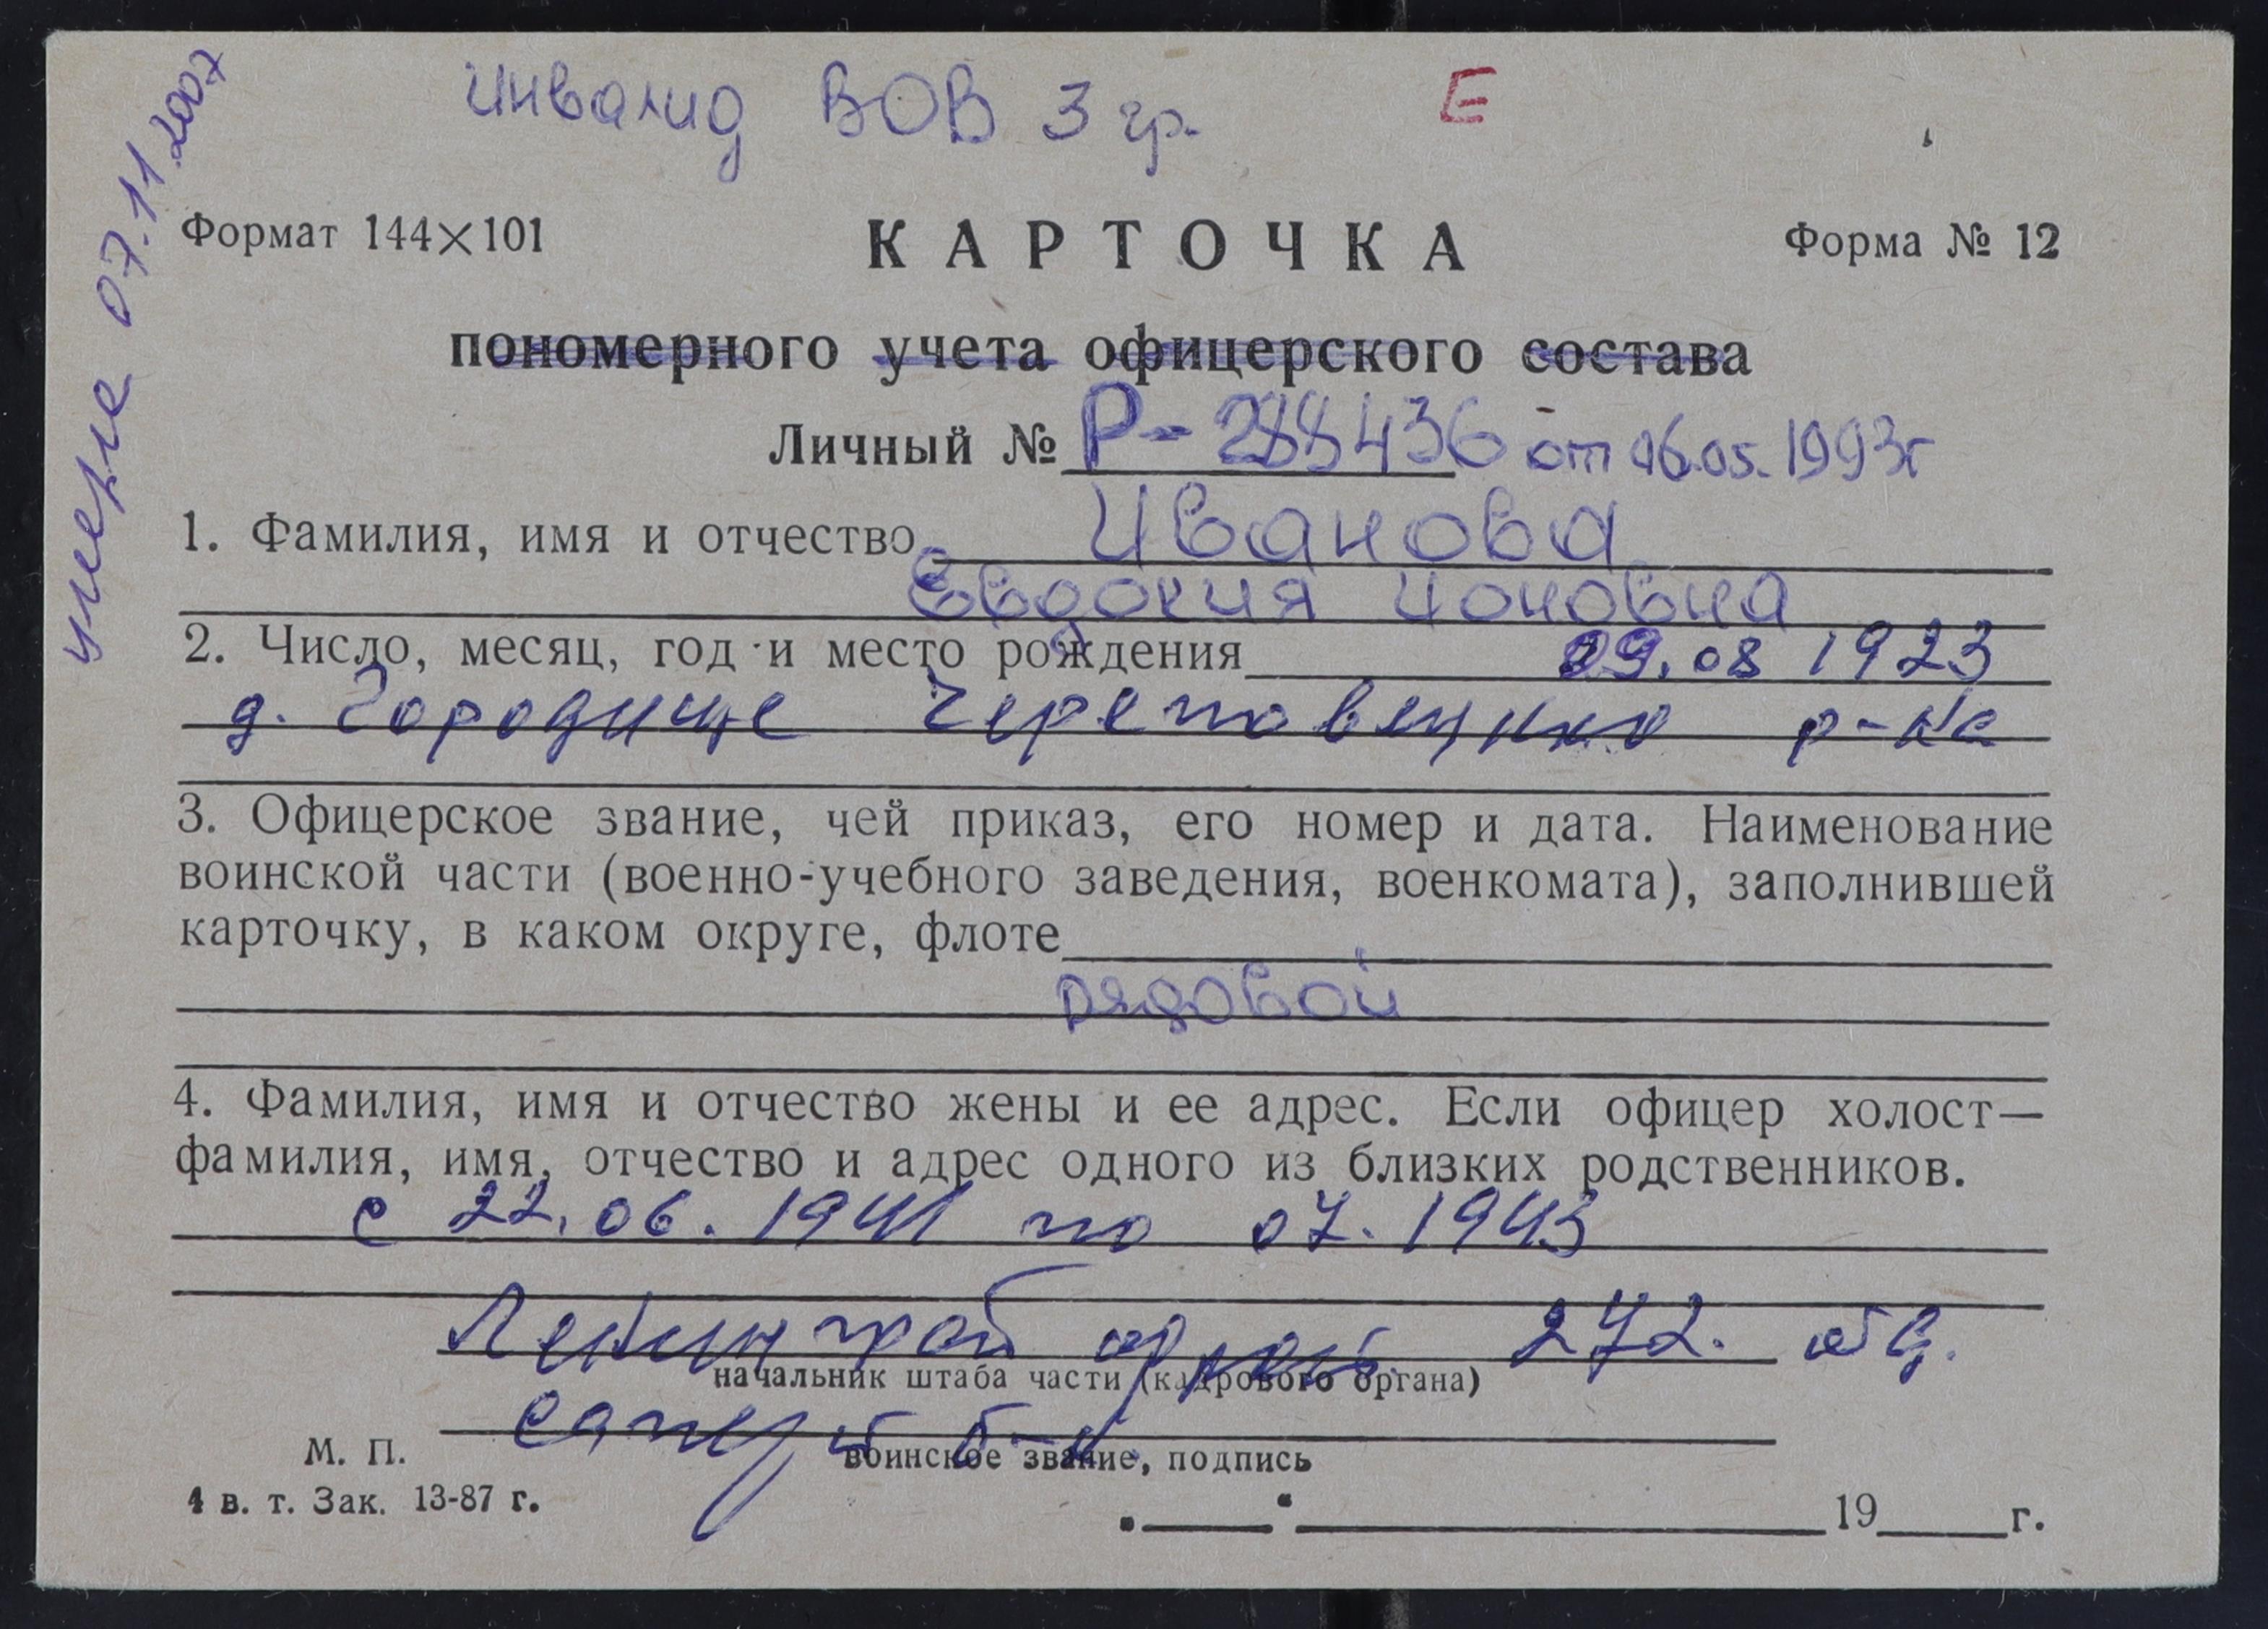 Инвалид ВОВ 3 гр. Е
умерла 07.11.2007
Формат 144×101 КАРТОЧКА Форма № 12
пономерного учета офицерского состава
Личный № Р-288436 от 06.05.1993г
1. Фамилия, имя и отчество Иванова
Евдокия Ионовна
2. Число, месяц, год и место рождения 29.08 1923
д. Городище Череповецкого р-на
3. Офицерское звание, чей приказ, его номер и дата. Наименование
воинской части (военно-учебного заведения, военкомата), заполнившей
карточку, в каком округе, флоте
рядовой
4. Фамилия, имя и отчество жены и ее адрес. Если офицер холост—
фамилия, имя, отчество и адрес одного из близких родственников.
с 22.06.1941 по 07.1943
Ленинград 272.
начальник штаба части (кадрового органа)
сапер б-н
воинское звание, подпись
М. П.
4 в. т. Зак. 13-87 г.
19 г.